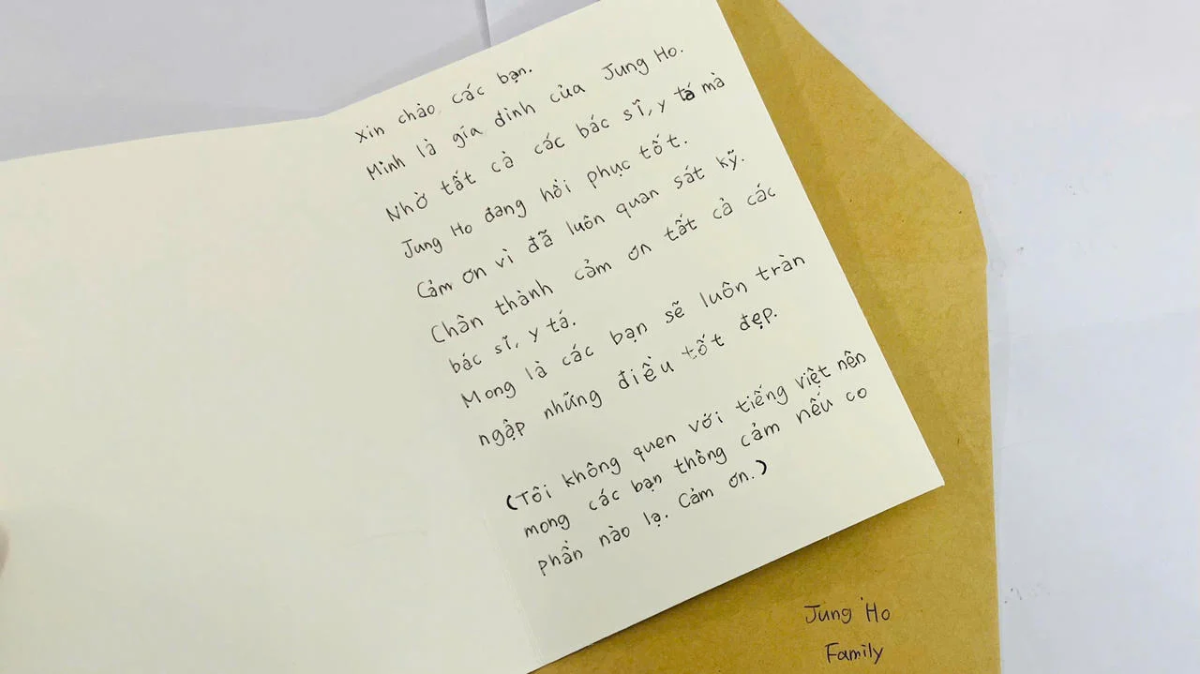 Xin chào các bạn.
Mình là gia đình của Jung Ho.
Nhờ tất cả các bác sĩ, y tá mà
Jung Ho đang hồi phục tốt.
Cảm ơn vì đã luôn quan sát kỹ.
Chân thành cảm ơn tất cả các
bác sĩ, y tá.
Mong là các bạn sẽ luôn tràn
ngập những điều tốt đẹp.
(Tôi không quen với tiếng việt nên
mong các bạn thông cảm nếu co
phần nào lạ. Cảm ơn.)
Jung Ho
Family